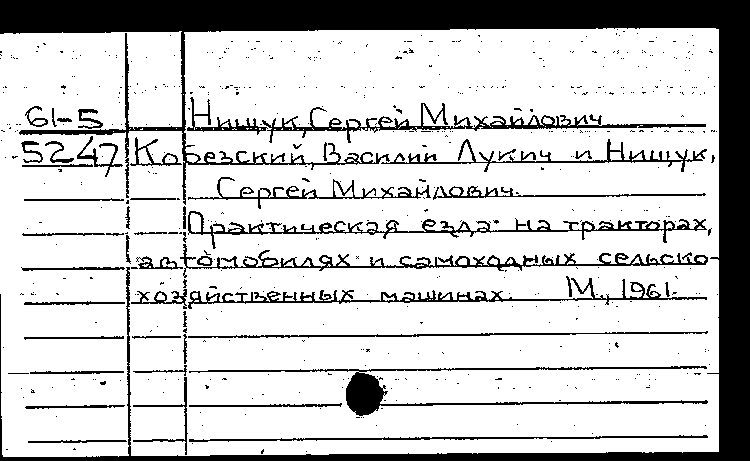 61-5 Нищук, Сергей Михайлович
5247 Кобезский, Василий Лукич и Нищук,
Сергей Михайлович.
Практическая езда на тракторах,
автомобилях и самоходных сельско-
хозяйственных машинах. М., 1961.